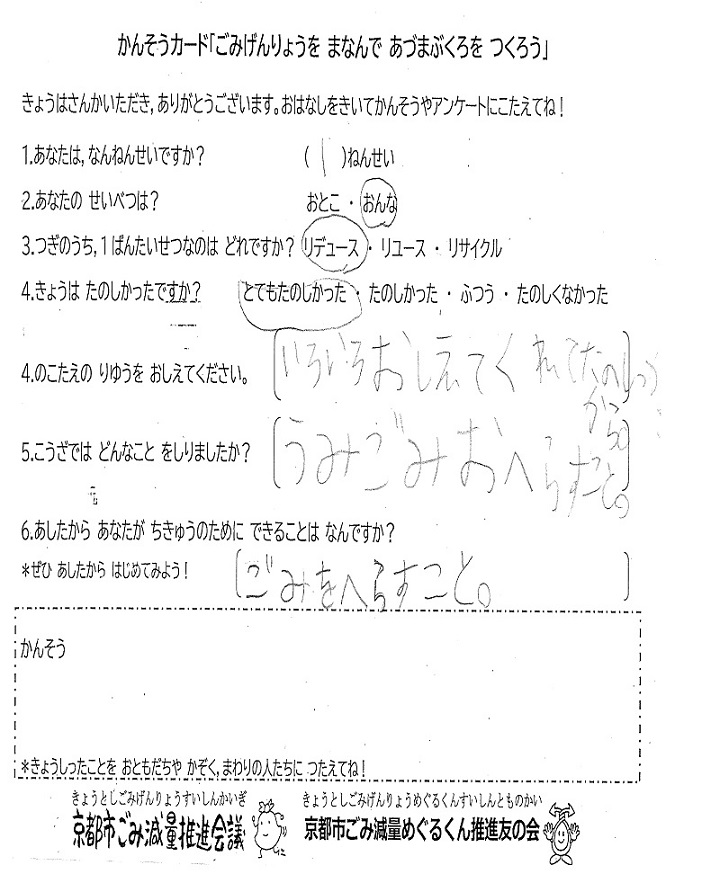 かんそうカード「ごみげんりょうを まなんで あづまぶくろを つくろう」
きょうはさんかいただき,ありがとうございます。おはなしをきいてかんそうやアンケートにこたえてね！
1.あなたは,なんねんせいですか？ (1)ねんせい
2.あなたの せいべつは？ おとこ ・ おんな
3.つぎのうち,1ばんたいせつなのは どれですか？ リデュース ・ リユース ・ リサイクル
4.きょうは たのしかったですか？ とてもたのしかった ・ たのしかった ・ ふつう ・ たのしくなかった
4.のこたえの りゆうを おしえてください。 [いろいろおしえてくれてたの
から。
5.こうざでは どんなこと をしりましたか？ [うみごみおへらすこと。]
6.あしたから あなたが ちきゅうのために できることは なんですか？
*ぜひ あしたから はじめてみよう！ [ごみをへらすこと。]
かんそう
*きょうしったことを おともだちや かぞく,まわりの人たちに つたえてね！
きょうとしごみげんりょうすいしんかいぎ きょうとしごみげんりょうめぐるくんすいしんとものかい
京都市ごみ減量推進会議 京都市ごみ減量めぐるくん推進友の会